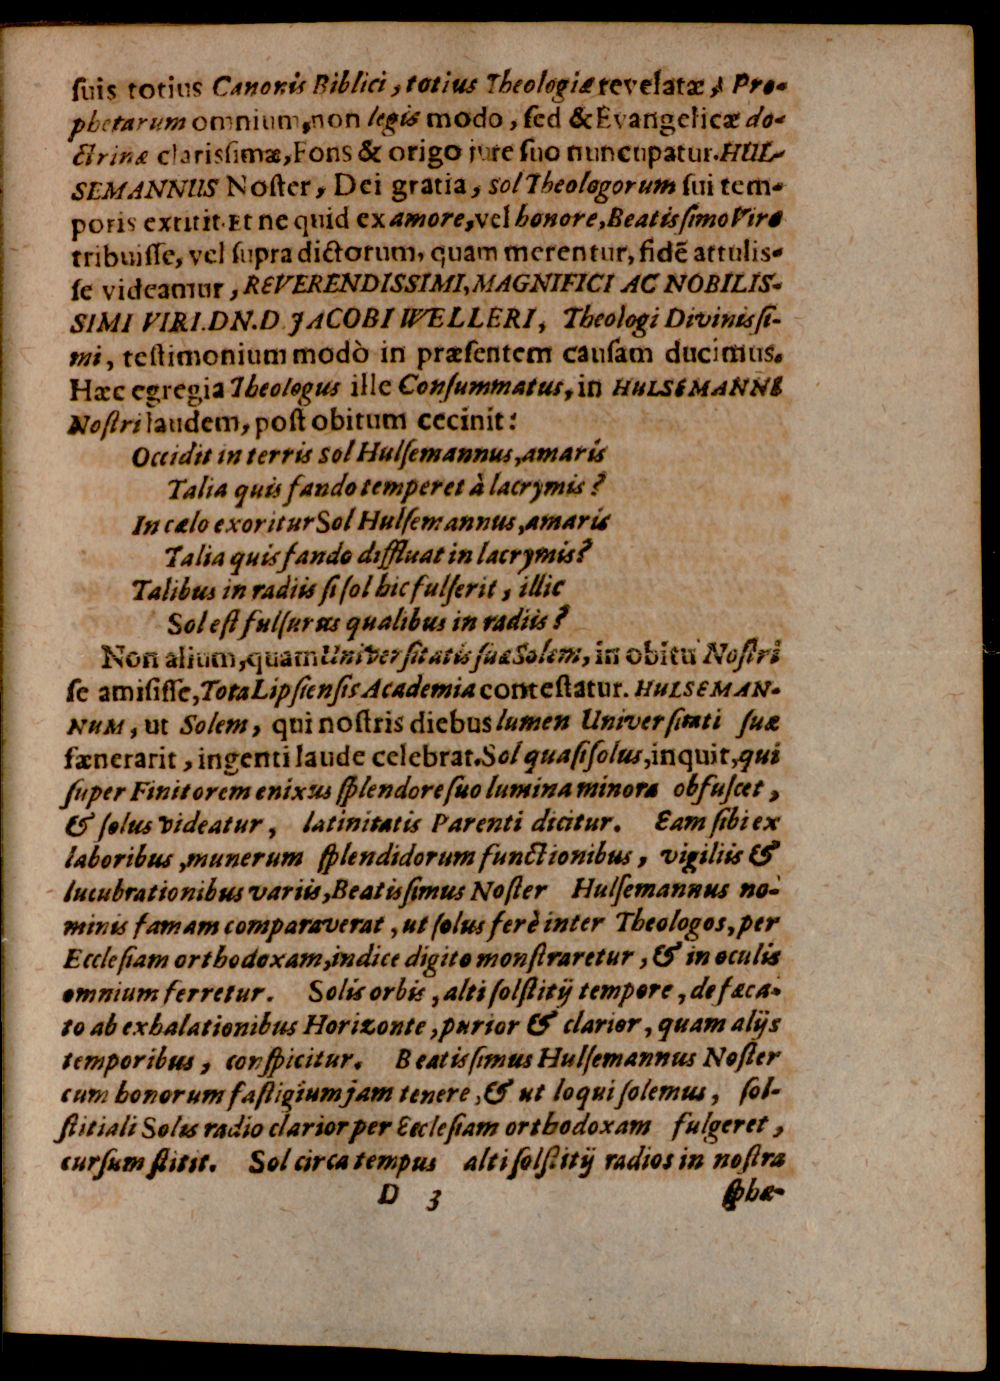 ſuis totius Canonis Biblici, totius Theologiæ revelatæ, Pro-
phetarum omnium, non legis modo, ſed & Evangelicæ do-
ctrinæ clarisſimæ, Fons & origo jure ſuo nuncupatur. HUL-
SEMANNUS Noſter, Dei gratia, Sol Theologorum ſui tem-
poris extitit. Et ne quid ex amore, vel honore, Beatisſimo Viro
tribuiſſe, vel ſupra dictorum, quam merentur, fidẽ attulis-
ſe videamur, REVERENDISSIMI, MAGNIFICI AC NOBILIS-
SIMI VIRI. DN. D JACOBI WELLERI, Theologi Divinisſi-
mi, teſtimonium modò in præſentem cauſam ducimus.
Hæc egregia Theologus ille Conſummatus, in HULSEMANNI
Noſtri laudem, poſt obitum cecinit:
Occidit in terris Sol Hulſemannus, amaris
Talia quis fando temperet à lacrymis?
In cælo exoritur Sol Hulſemannus, amaris
Talia quis fando diffluat in lacrymis?
Talibus in radiis ſi ſol hic fulſerit, illic
Sol eſt fulſurus qualibus in radiis?
Non alium, quam Univerſitatis ſuæ Solem, in obitu Noſtri
ſe amiſiſſe, Tota Lipſienſis Academia conteſtatur. HULSEMAN-
NUM, ut Solem, qui noſtris diebus lumen Univerſitati ſuæ
fænerarit, ingenti laude celebrat. Sol quaſi ſolus, inquit, qui
ſuper Finitorem enixus ſplendore ſuo lumina minora obfuſcet,
& ſolus videatur, latinitatis Parenti dicitur. Eam ſibi ex
laboribus, munerum ſplendidorum functionibus, vigiliis &
lucubrationibus variis, Beatisſimus Noſter Hulſemannus no-
minis famam comparaverat, ut ſolus ferè inter Theologos, per
Eccleſiam orthodoxam, indice digito monſtraretur, & in oculis
omnium ferretur. Solis orbis, alti ſolſtitij tempore, defæca-
to ab exhalationibus Horizonte, purior & clarior, quam alijs
temporibus, conſpicitur. Beatisſimus Hulſemannus Noſter
cum honorum faſtigium jam tenere, & ut loqui ſolemus, ſol-
ſtitiali Solis radio clarior per Eccleſiam orthodoxam fulgeret,
curſum ſtitit. Sol circa tempus alti ſolſtitij radios in noſtra
D 3 ſphæ-